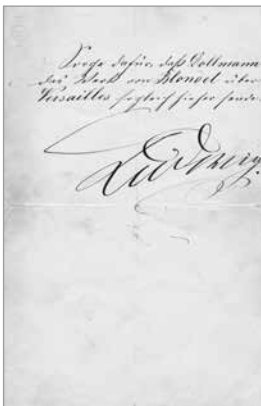 Sorge dafür, daß Dollmann
das Werk von Blondel über
Versailles sogleich hieher sende.
Ludwig.